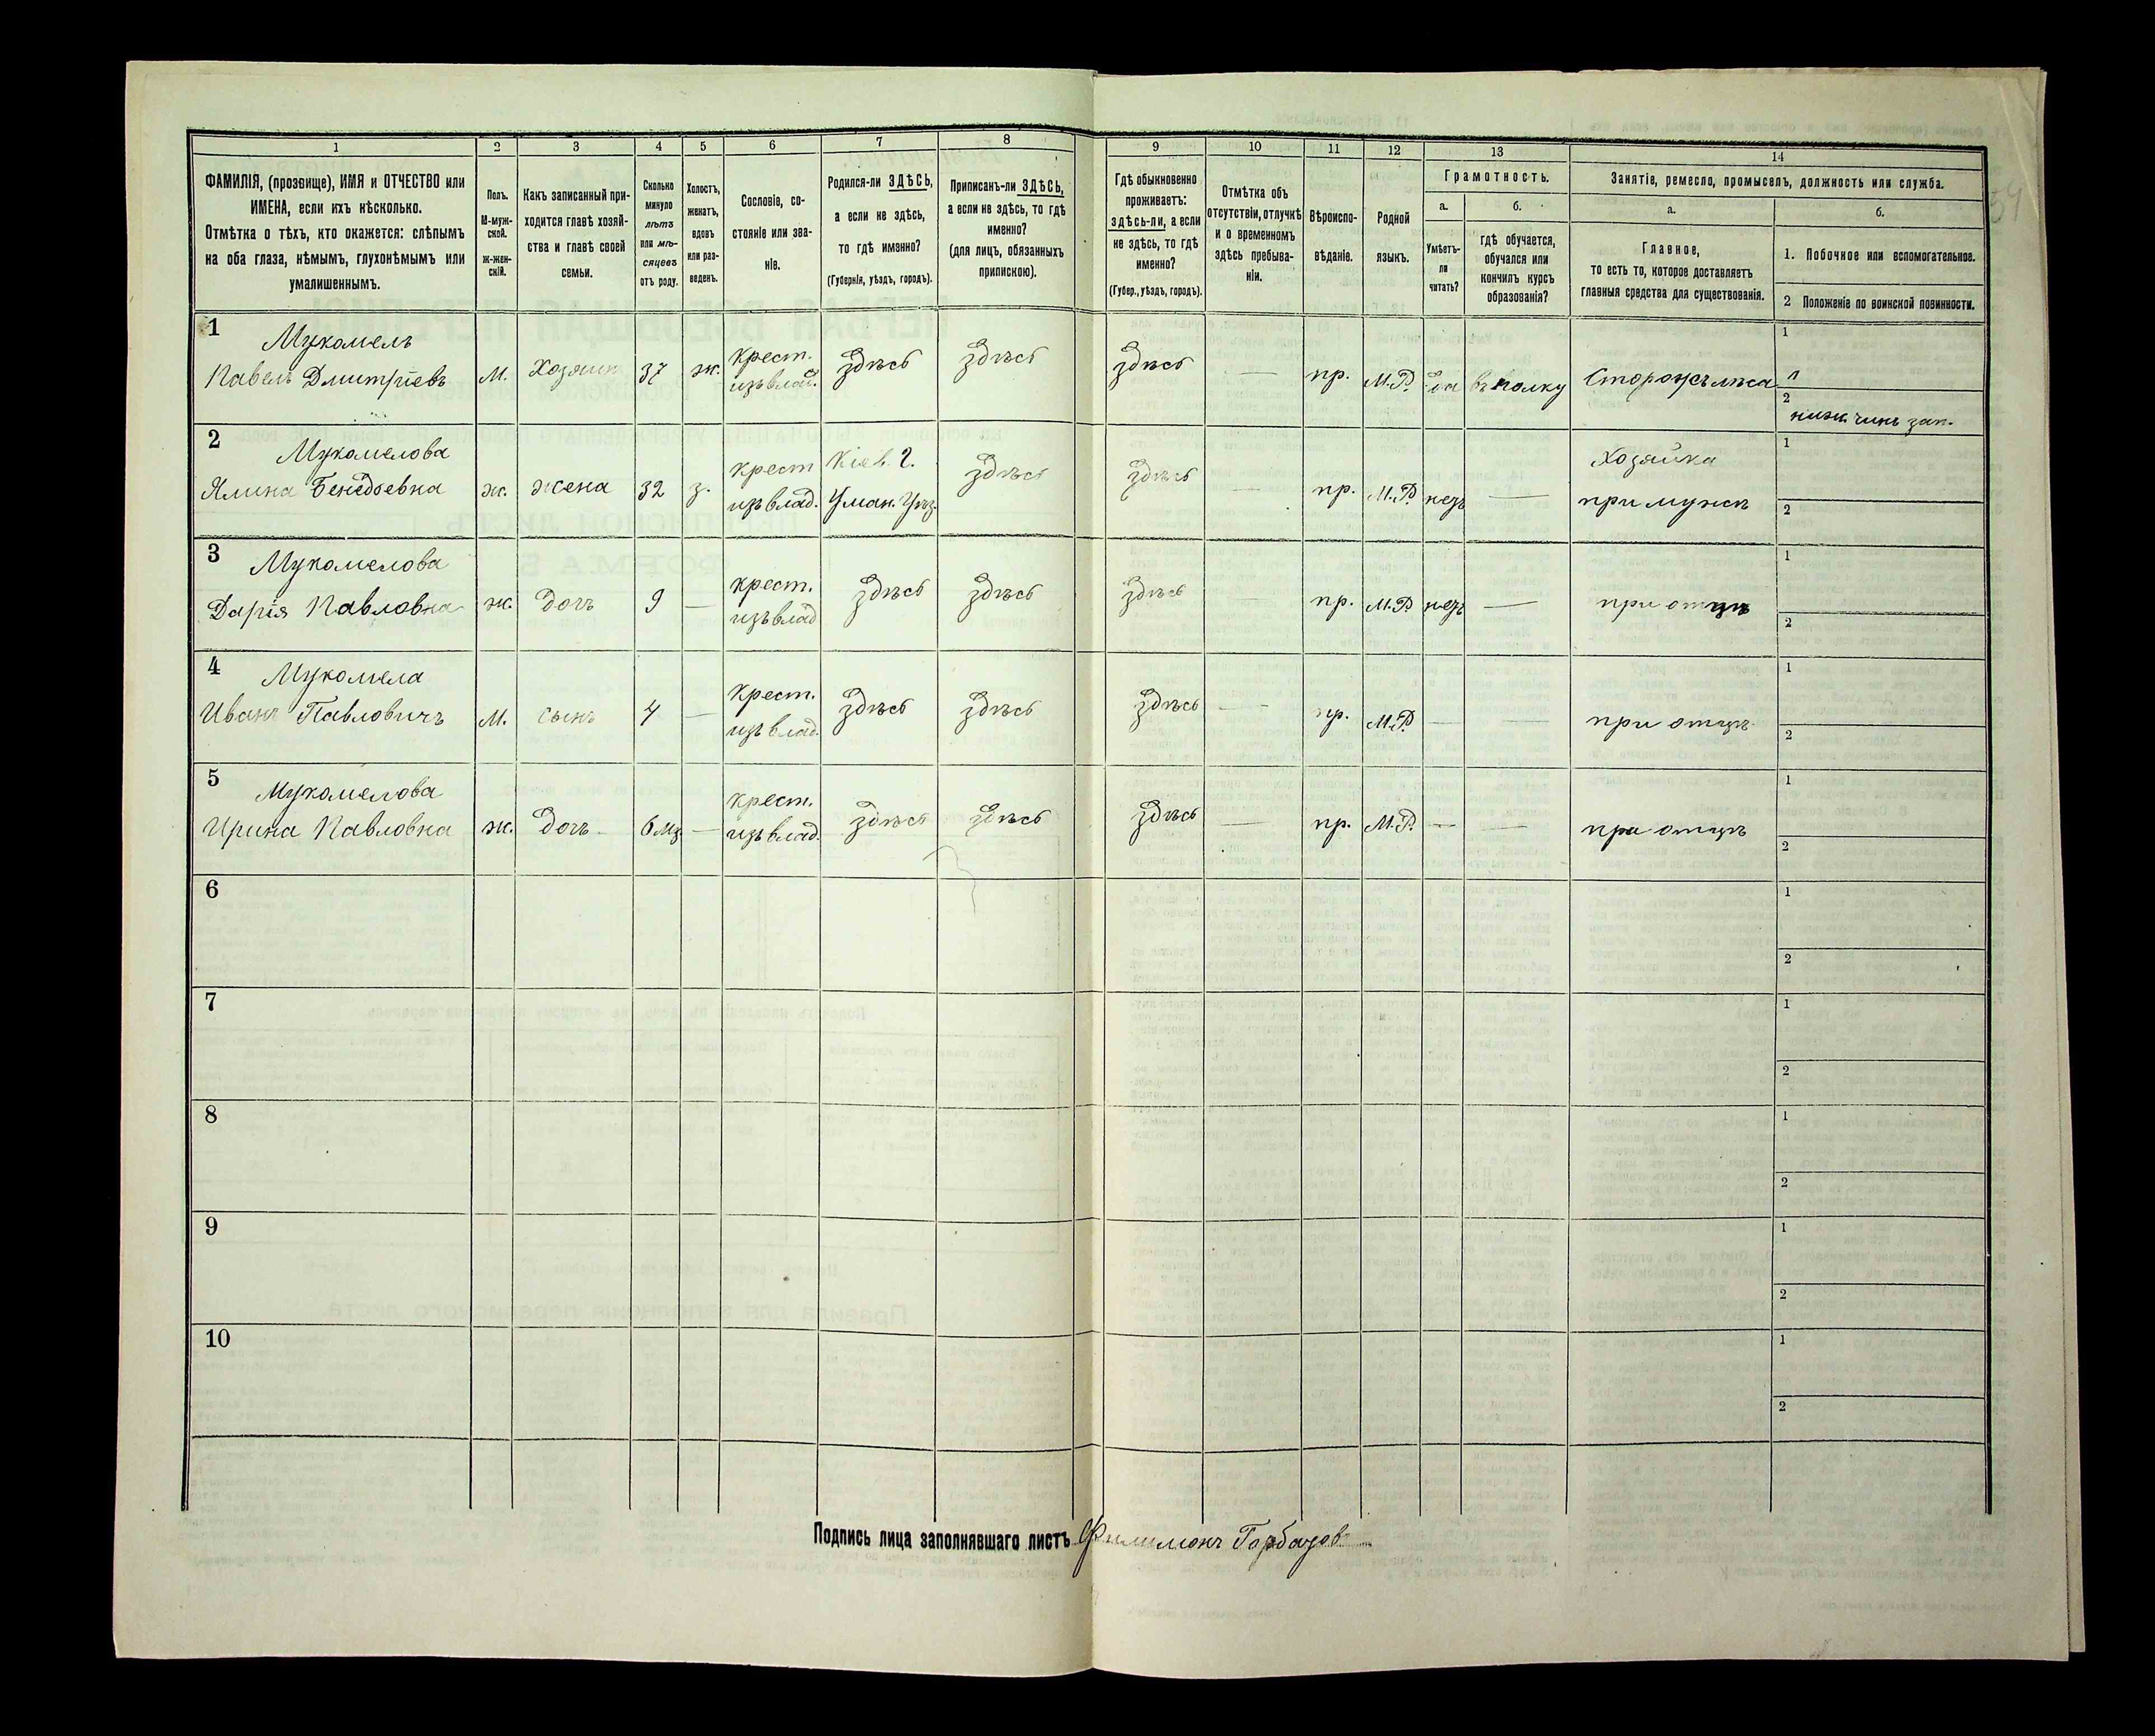 1 2 3 4 5 6 7 8 9 10 11 12 13 14
ФАМИЛІЯ, (прозвище), ИМЯ и ОТЧЕСТВО или
ИМЕНА, если ихъ нѣсколько.
Отмѣтка о тѣхъ, кто окажется: слѣпымъ
на оба глаза, нѣмымъ, глухонѣмымъ или
умалишеннымъ.
Полъ.
М-муж-
ской.
ж-жен-
скій.
Какъ записанный при-
ходится главѣ хозяй-
ства и главѣ своей
семьи.
Сколько
минуло
лѣтъ
или мѣ-
сяцевъ
отъ роду.
Холостъ,
женатъ,
вдовъ
или раз-
веденъ.
Сословіе, со-
стояніе или зва-
ніе.
Родился-ли ЗДѢСЬ,
а если не здѣсь,
то гдѣ именно?
(Губернія, уѣздъ, городъ).
Приписанъ-ли ЗДѢСЬ,
а если не здѣсь, то гдѣ
именно?
(для лицъ, обязанныхъ
припискою).
Гдѣ обыкновенно
проживаетъ:
здѣсь-ли, а если
не здѣсь, то гдѣ
именно?
(Губер., уѣздъ, городъ).
Отмѣтка объ
отсутствіи, отлучкѣ
и о временномъ
здѣсь пребыва-
ніи.
Вѣроиспо-
вѣданіе.
Родной
языкъ.
Грамотность.
а.
Умѣетъ-
ли
читать?
б.
гдѣ обучается,
обучался или
кончилъ курсъ
образованія?
Занятіе, ремесло, промыселъ, должность или служба.
а.
Главное,
то есть то, которое доставляетъ
главныя средства для существованія.
б.
1. Побочное или вспомогательное.
2 Положеніе по воинской повинности.
1 Мукомелъ
Павелъ Дмитріевъ
м. Хозяинъ 37 ж.
крест.
изъ влад.
здѣсь здѣсь здѣсь — пр. М.Р. да въ полку
Сторожъ лѣса
1
2
нижн. чинъ зап.
2 Мукомелова
ж. жена 32 з.
крест
изъ влад.
Кіев. г.
Уман. Уѣз.
здѣсь здѣсь — пр. М.Р. —
Хозяйка
при мужѣ
1
2
3 Мукомелова
Дарія Павловна
ж. дочь 9 —
крест.
изъ влад
здѣсь здѣсь здѣсь пр. М.Р. —
при отцѣ
1
2
4 Мукомела
Иванъ Павловичъ
м. сынъ 4 —
крест.
изъ влад.
здѣсь здѣсь здѣсь — пр. М.Р. — —
при отцѣ
1
2
5 Мукомелова
Ирина Павловна
ж. дочь 6 мѣ —
крест.
изъ влад.
здѣсь здѣсь здѣсь — пр. М.Р. — —
при отцѣ
1
2
6
1
2
7
1
2
8
1
2
9
1
2
10
1
2
Подпись лица заполнявшаго листъ Филимонъ